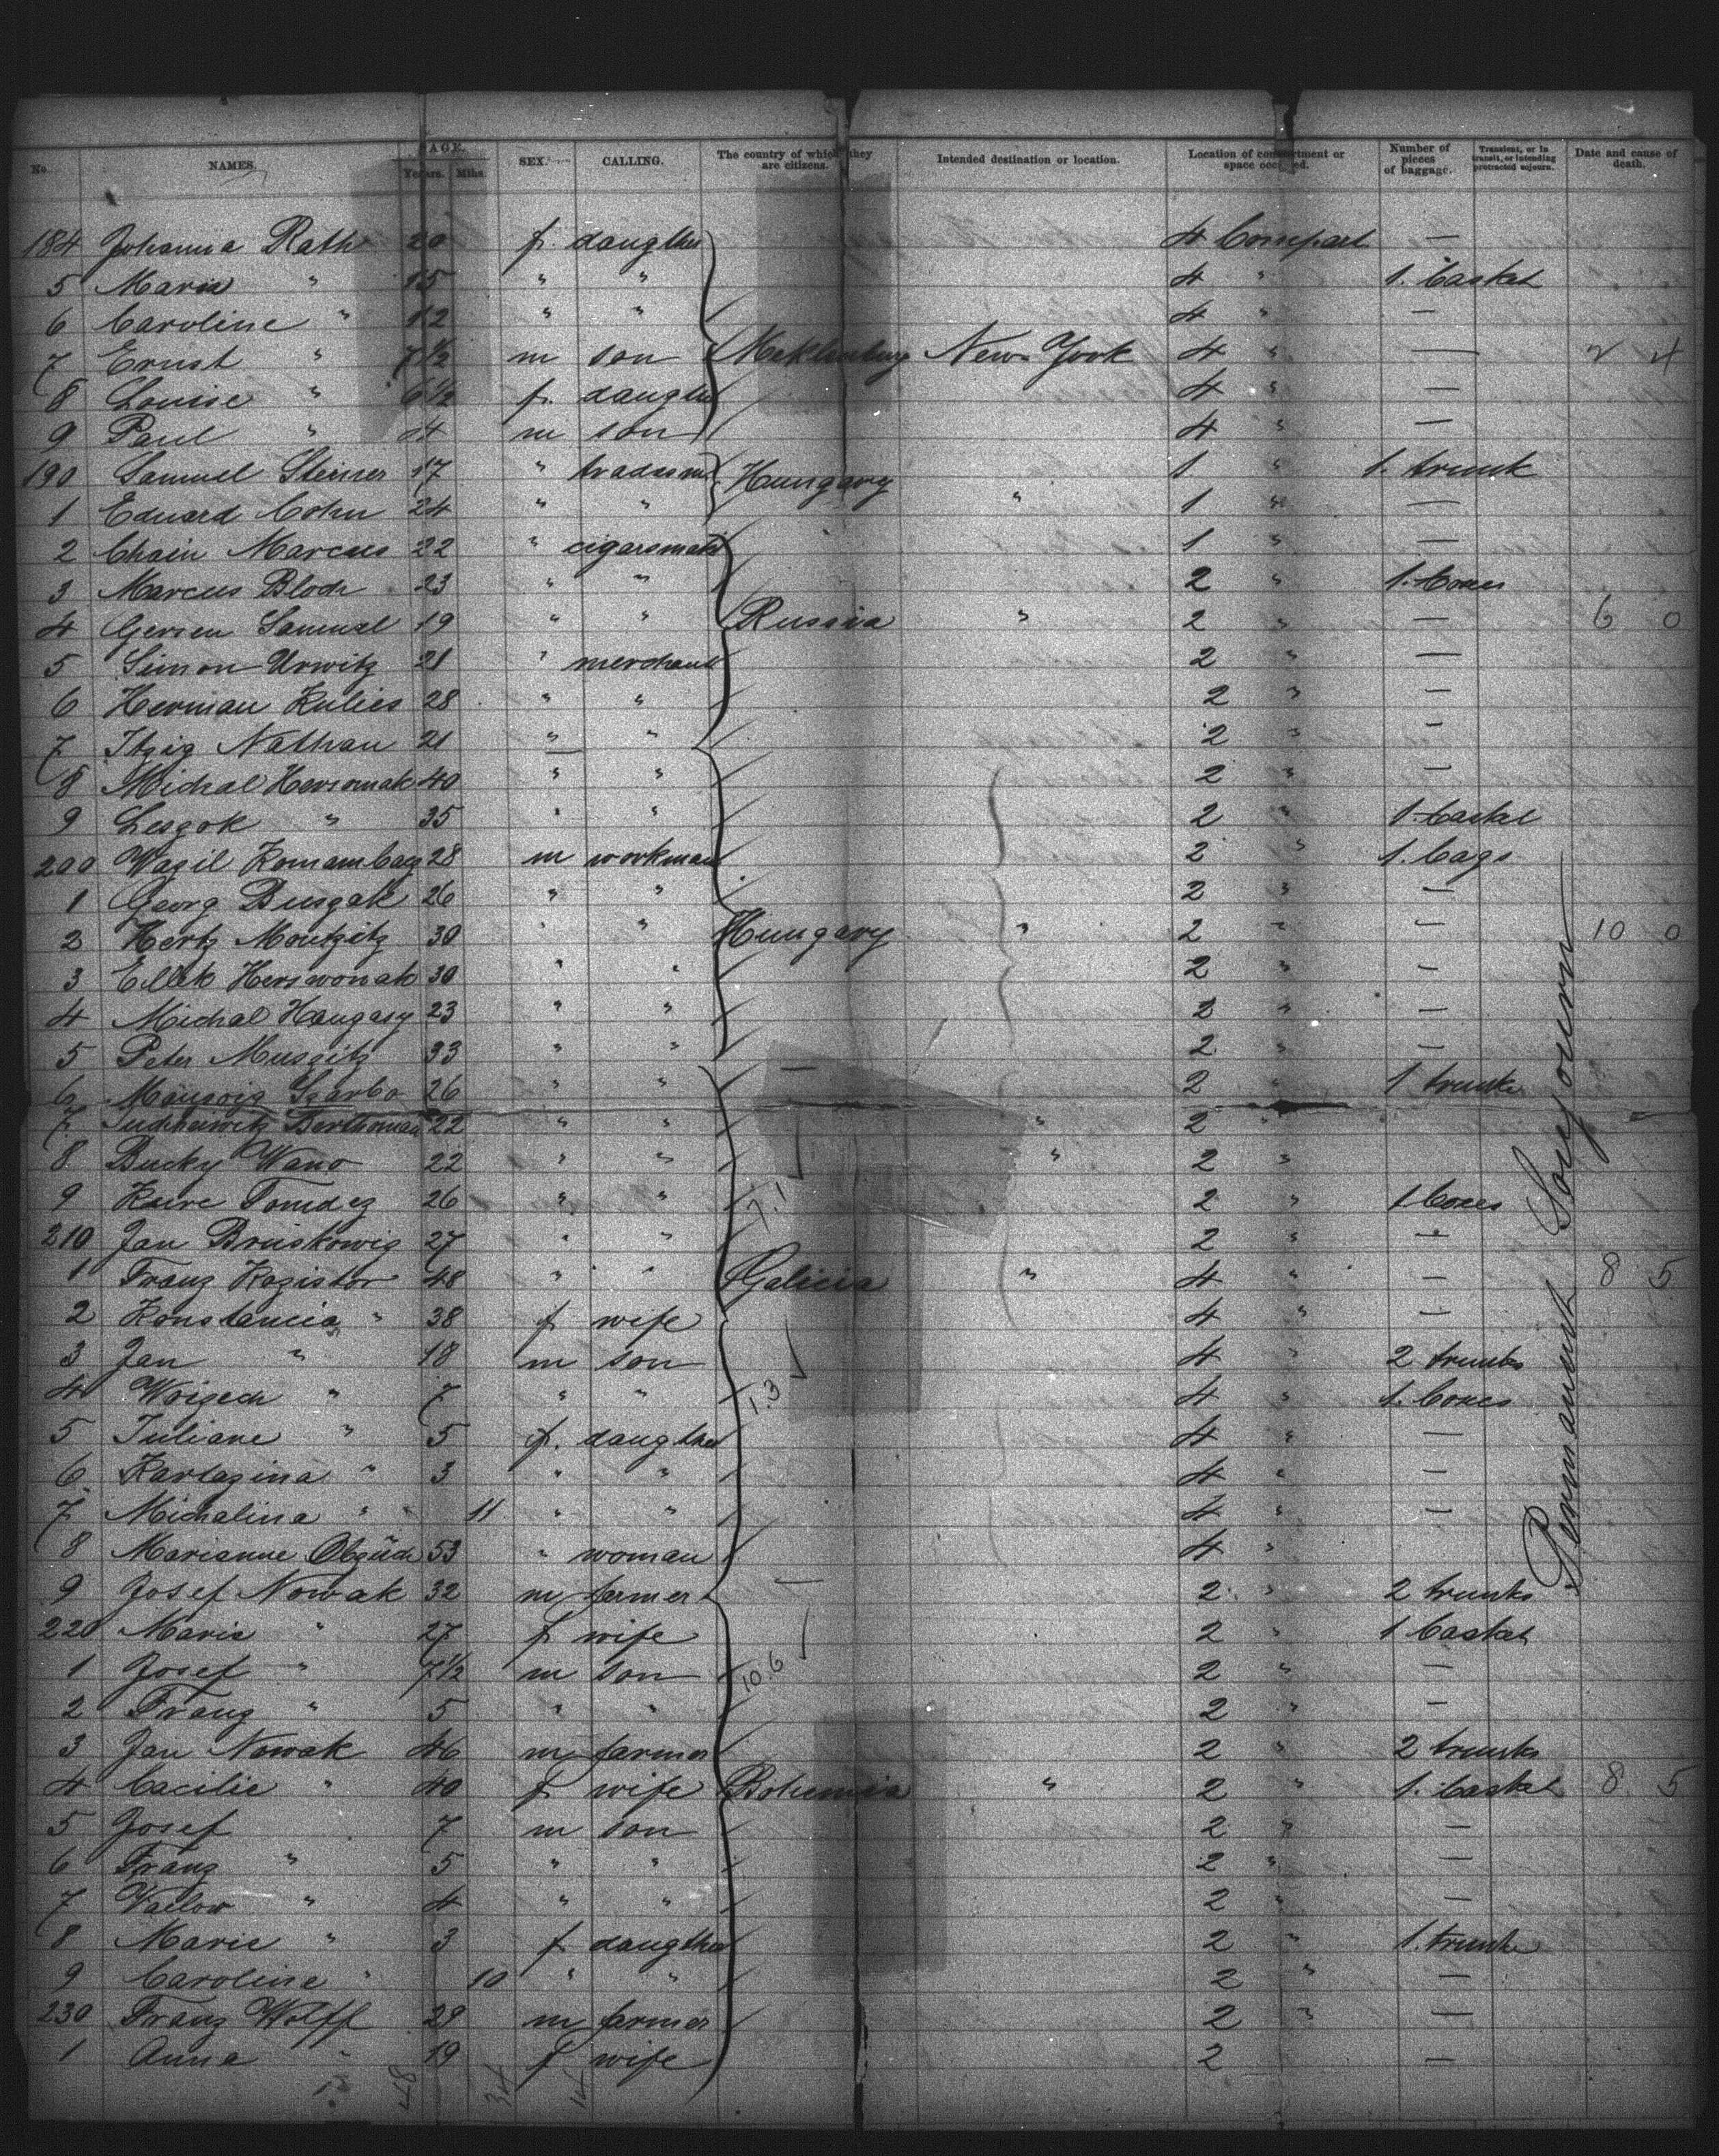 No. NAMES. AGE. Years. Mths. SEX. CALLING. The country of which they are citizens. Intended destination or location. Location of compartment or space occupied. Number of pieces of baggage. Transient, or in transit, or intending protracted sojourn. Date and cause of death.
184 Johanna Rath 20 f. daugther 4 Compart —
5 Maria " 15 " " 4 " 1. basket
6 Caroline " 12 " " 4 " —
7 Ernst " 7 1/2 m son Meklenburg New York 4 " — 2 4
8 Louise " 6 1/2 f. daugther 4 " —
9 Paul " 4 m son 4 " —
190 Samuel Steiner 17 " tradesm. Hungary 1. " 1. trunk
1 Eduard Cohn 24 " " " 1 " —
2 Chain Marcus 22 " cigarsmaker 1 " —
3 Marcus Bloch 23 " " 2 " 1. boxes
4 Gersen Samuel 19 " " Russia " 2 " — 6 0
5 Simon Urwitz 21 " merchant 2 " —
6 Herman Kulies 28 " " 2 " —
7 Itzig Nathan 21 " " 2 " —
8 Michal 40 " " 2 " —
9 " 35 " " 2 " 1. basket
200 28 m workman 2 " 1. bags
1 Georg Dusgak 26 " " 2 " —
2 Hertz 30 " " Hungary " 2 " — 10 0
3 Ellek 30 " " 2 " —
4 Michal 23 " " 2 " —
5 Peter Musgitz 33 " " 2 " —
6 26 " " 2 " 1 trunk
7 22 " " " 2 "
8 Bucky Wano 22 " " " 2 "
9 26 " " 2 " 1 boxes
7.1
210 Jan Bruskowig 27 " " 2 " —
1 Franz Kogistor 48 " " Galicia " 4 " — 8 5
2 Konstancia " 38 f wife 4 " —
3 Jan " 18 m son 4 " 2 trunks
4 Woizech " 7 " " 1.3 4 " 1. boxes
5 Juliane " 5 f. daugther 4 " —
6 " 3 " " 4 " —
7 Michalina " 11 " " 4 " —
8 Marianne 53 " woman 4 "
9 Josef Nowak 32 m farmer 2 " 2 trunks
220 Marie " 27 f wife 2 " 1 basket
1 Josef " 7 1/2 m son 10.6 2 " —
2 Franz " 5 " " 2 " —
3 Jan Nowak 46 m farmer 2 " 2 trunks
4 Cacilie " 40 f wife Bohemia " 2 " 1. basket 8 5
5 Josef 7 m son 2 " —
6 Franz " 5 " " 2 " —
7 " 4 " " 2 " —
8 Marie " 3 f daugther 2 " 1. trunk
9 Caroline " 10 " " 2 " —
230 Franz Wolff 29 m farmer 2 " —
1 Anna " 19 f wife 2 —
48 34 14
Permanent Soujourn